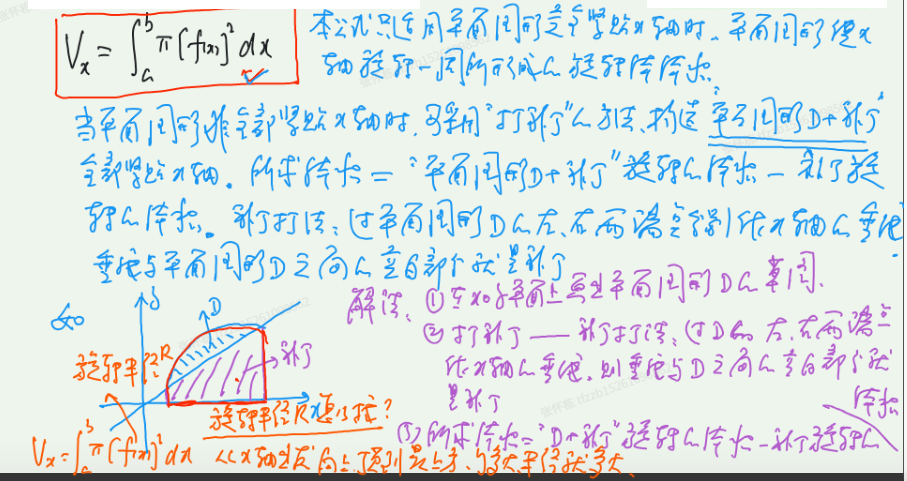 Vx = ∫_a^b π[f(x)]² dx
本公式只适用平面图形完全紧贴x轴时。平面图形绕x
轴旋转一周所形成的旋转体体积.
当平面图形非全部紧贴x轴时,可采用“打补丁”的方法,构造“平面图形D+补丁”
全部紧贴x轴。所求体积=“平面图形D+补丁”旋转的体积-补丁旋
转的体积。补丁打法:过平面图形D的左、右两端点分别作x轴的垂线
垂线与平面图形D之间的空白部分就是补丁
如
y
D
补丁
x
旋转半径R
旋转半径R怎么求?
Vx = ∫_a^b π[f(x)]² dx
从x轴出发向上,顶到最上方,
解法:①在xoy平面上画出平面图形D的草图.
②打补丁——补丁打法:过D的左、右两端点
作x轴的垂线,则垂线与D之间的空白部分就
是补丁
③所求体积=“D+补丁”旋转的体积-补丁旋转的
体积